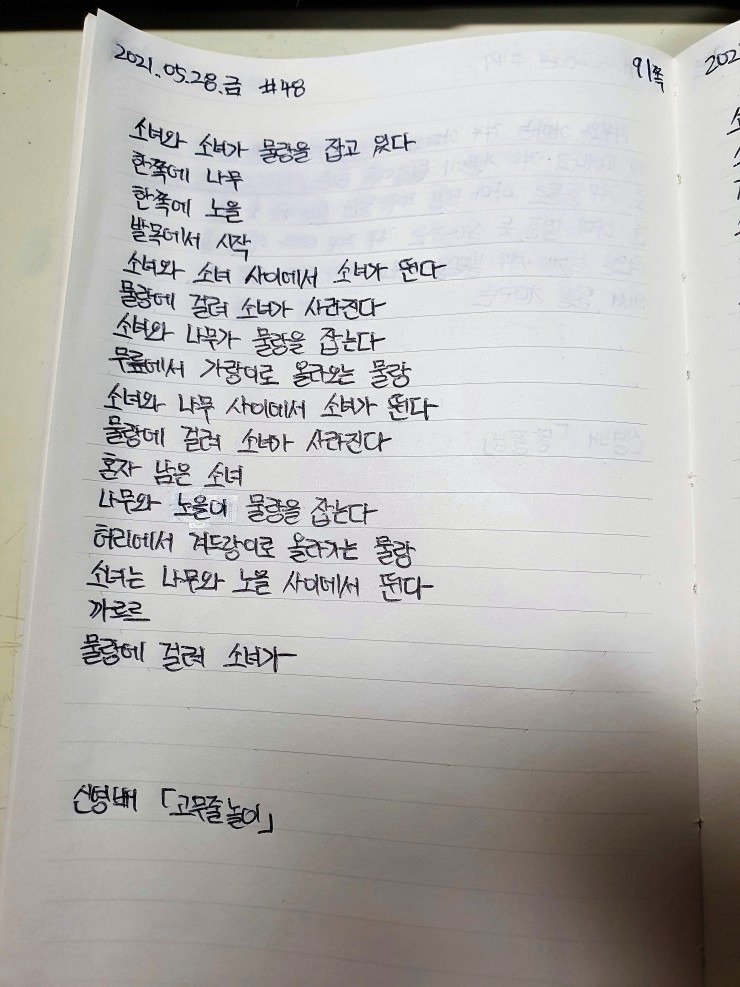 2021.05.28.금 #48
91쪽
소녀와 소녀가 물랑을 잡고 있다
한쪽에 나무
한쪽에 노을
발목에서 시작
소녀와 소녀 사이에서 소녀가 뛴다
물랑에 걸려 소녀가 사라진다
소녀와 나무가 물랑을 잡는다
무릎에서 가랑이로 올라오는 물랑
소녀와 나무 사이에서 소녀가 뛴다
물랑에 걸려 소녀가 사라진다
혼자 남은 소녀
나무와 노을이 물랑을 잡는다
허리에서 겨드랑이로 올라가는 물랑
소녀는 나무와 노을 사이에서 뛴다
까르르
물랑에 걸려 소녀가
신영배 「고무줄놀이」
202